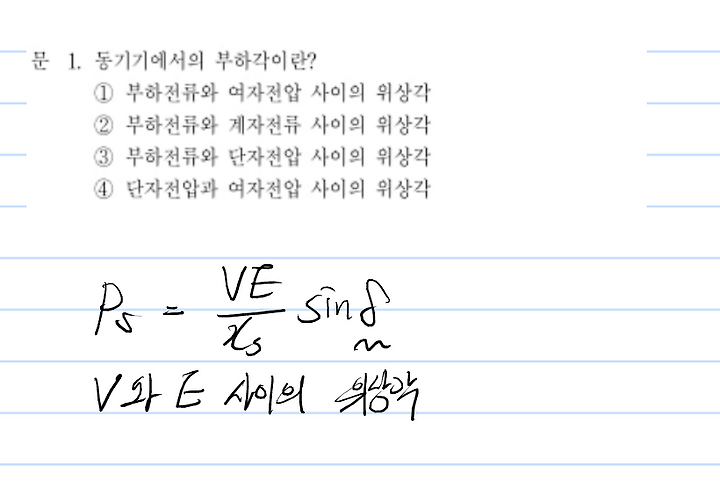 문 1. 동기기에서의 부하각이란?
① 부하전류와 여자전압 사이의 위상각
② 부하전류와 계자전류 사이의 위상각
③ 부하전류와 단자전압 사이의 위상각
④ 단자전압과 여자전압 사이의 위상각
Ps = VE/xs sin δ
V와 E 사이의 위상각